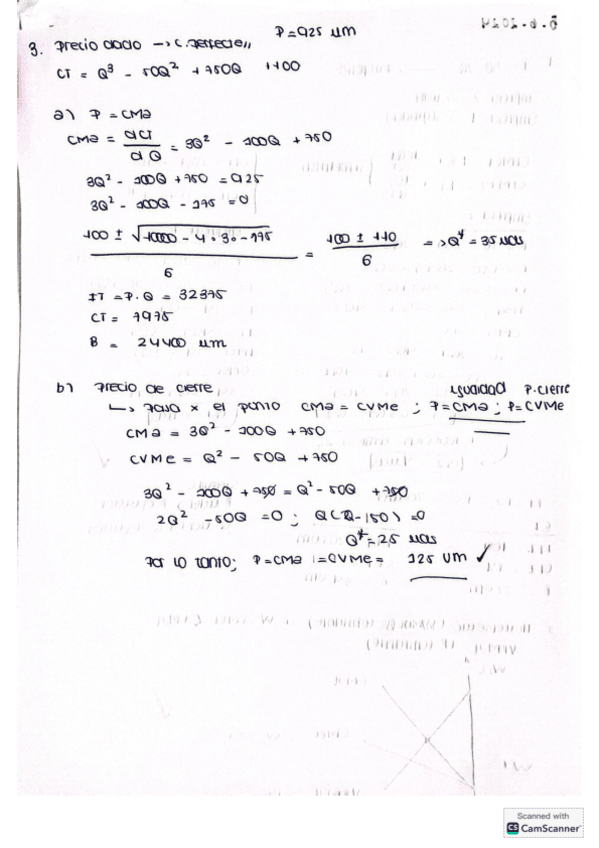 P = 925 um
3. Precio dado → C. Perfecta //
CT = Q³ - 50Q² + 750Q 1100
a) P = CMa
CMa = dCT / dQ = 3Q² - 100Q + 750
3Q² - 100Q + 750 = 925
3Q² - 100Q - 175 = 0
100 ± √10000 - 4 · 3 · -175 / 6 = 100 ± 110 / 6 => Q* = 35 uds
IT = P.Q = 32375
CT = 7975
B = 24400 um
b) Precio de cierre igualdad P.cierre
↳ Pasa x el punto CMa = CVMe ; P = CMa ; P = CVMe
CMa = 3Q² - 100Q + 750
CVMe = Q² - 50Q + 750
3Q² - 100Q + 750 = Q² - 50Q + 750
2Q² - 50Q = 0 ; Q(2 - 50) = 0
Q* = 25 uds
Por lo tanto; P = CMa = CVMe = 125 um ✓
Scanned with
CS CamScanner